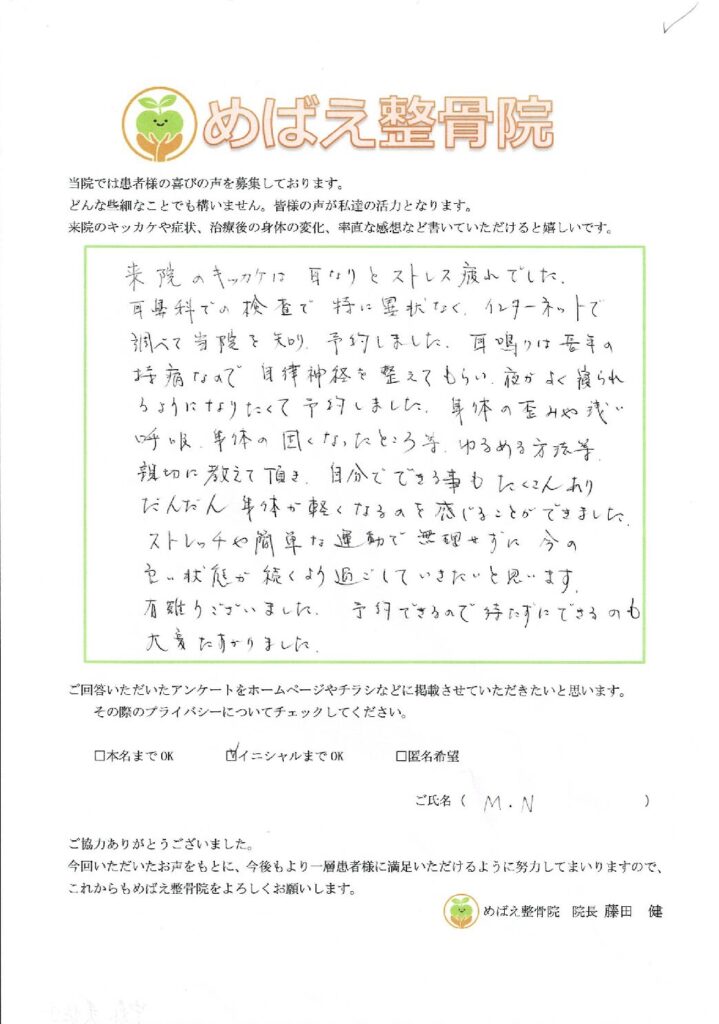 めばえ整骨院
当院では患者様の喜びの声を募集しております。
どんな些細なことでも構いません。皆様の声が私達の活力となります。
来院のキッカケや症状、治療後の身体の変化、率直な感想など書いていただけると嬉しいです。
来院のキッカケは 耳なりとストレス疲れでした。
耳鼻科での検査で 特に異状なく、インターネットで
調べて当院を知り、予約しました。耳鳴りは長年の
持病なので 自律神経を整えてもらい、夜がよく寝られ
るようになりたくて予約しました。身体の歪みや浅い
呼吸、身体の固くなったところ等、ゆるめる方法等、
親切に教えて頂き、自分でできる事もたくさんあり
だんだん身体が軽くなるのを感じることができました。
ストレッチや簡単な運動で無理せずに 今の
良い状態が続くよう過ごしていきたいと思います。
有難うございました。 予約できるので待たずにできるのも
大変たすかりました。
ご回答いただいたアンケートをホームページやチラシなどに掲載させていただきたいと思います。
その際のプライバシーについてチェックしてください。
□本名までOK ☑イニシャルまでOK □匿名希望
ご氏名（ M.N ）
ご協力ありがとうございました。
今回いただいたお声をもとに、今後もより一層患者様に満足いただけるように努力してまいりますので、
これからもめばえ整骨院をよろしくお願いします。
めばえ整骨院 院長 藤田 健